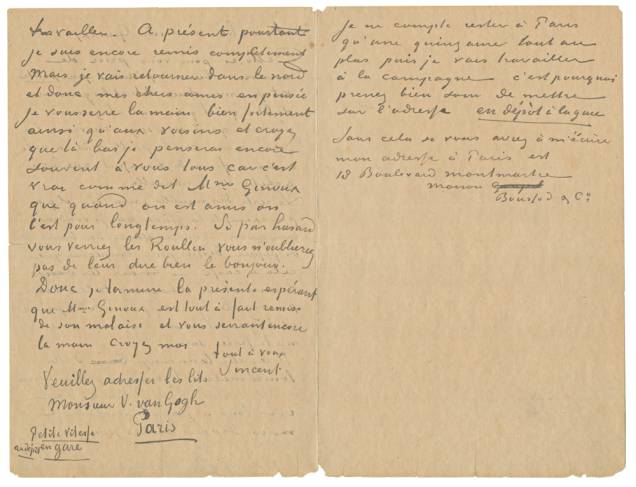 travailler. A présent pourtant
je suis encore remis complètement
Mais je vais retourner dans le nord
et donc mes chers amis en pensée
je vous serre la main bien fortement
ainsi qu'aux voisins et croyez
que là bas je penserai encore
souvent à vous tous car c'est
vrai comme dit Mme Ginoux
que quand on est amis on
l'est pour longtemps. Si par hasard
vous verriez les Roullin vous n'oublierez
pas de leur dire bien le bonjour.
Donc je termine la présente espérant
que Mme Ginoux est tout à fait remise
de son malaise et vous serrant encore
la main croyez moi
tout à vous
Vincent
Veuillez adresser les lits
Monsieur V. van Gogh
Paris
Petite vitesse
en gare
Je ne compte rester à Paris
qu'une quinzaine tout au
plus puis je vais travailler
à la campagne c'est pourquoi
prenez bien soin de mettre
sur l'adresse en dépôt à la gare
Sans cela si vous aviez à m'écrire
mon adresse à Paris est
19 Boulevard montmartre
maison
Boussod & Cie